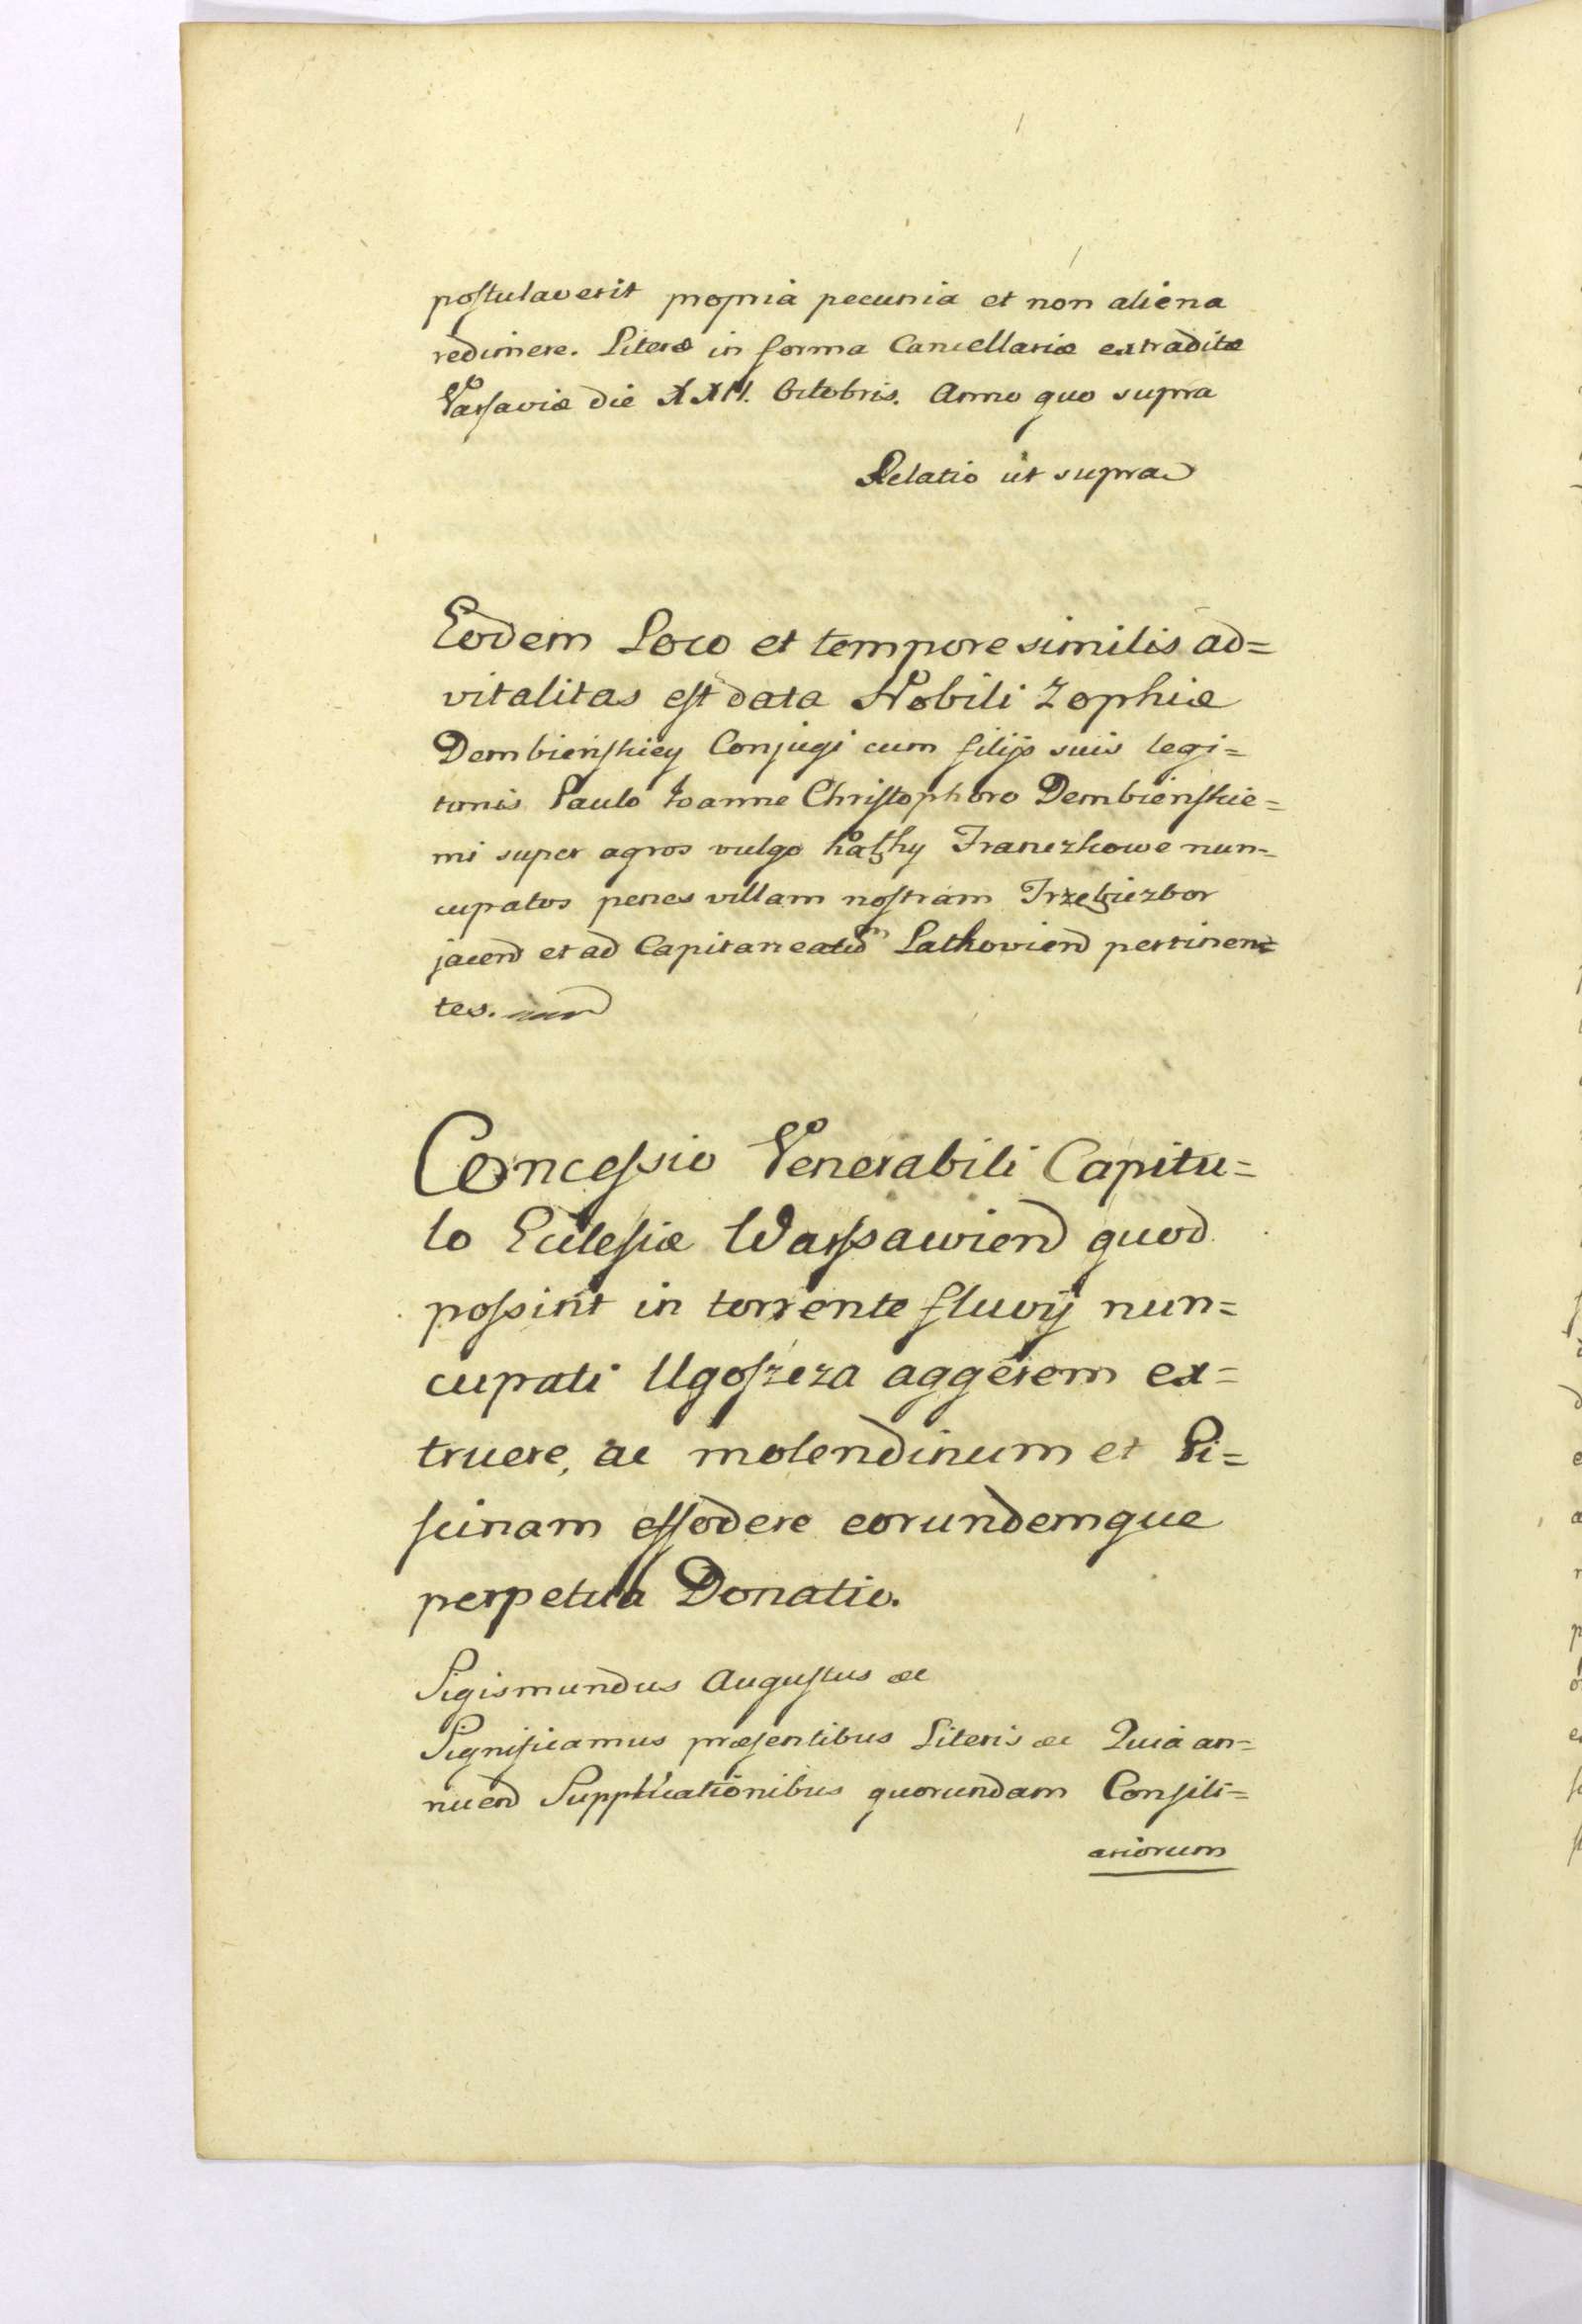 postulaverit propria pecunia et non aliena
redimere. Literæ in forma Cancellariæ extraditæ
Varsaviæ die XXII. Octobris. Anno quo supra
Relatio ut supra
Eodem Loco et tempore similis ad=
vitalitas est data Nobili Zophiæ
Dembieńskiey Conjugi cum filijs suis legi=
timis Paulo Ioanne Christophoro Dembieńskie=
mi super agros vulgo Kąthy Franczkowe nun=
cupatos penes villam nostram Trzebiezbor
jacend et ad Capitaneatum Lathoviend pertinen=
tes.
Concessio Venerabili Capitu=
lo Ecclesiæ Warssawiend quod
possint in torrente fluvij nun=
cupati Ugoszcza aggerem ex=
truere, ac molendinum et Pi=
scinam effodere eorundemque
perpetua Donatio.
Sigismundus Augustus &c
Significamus præsentibus Literis &c Quia an=
nuend Supplicationibus quorundam Consili=
ariorum